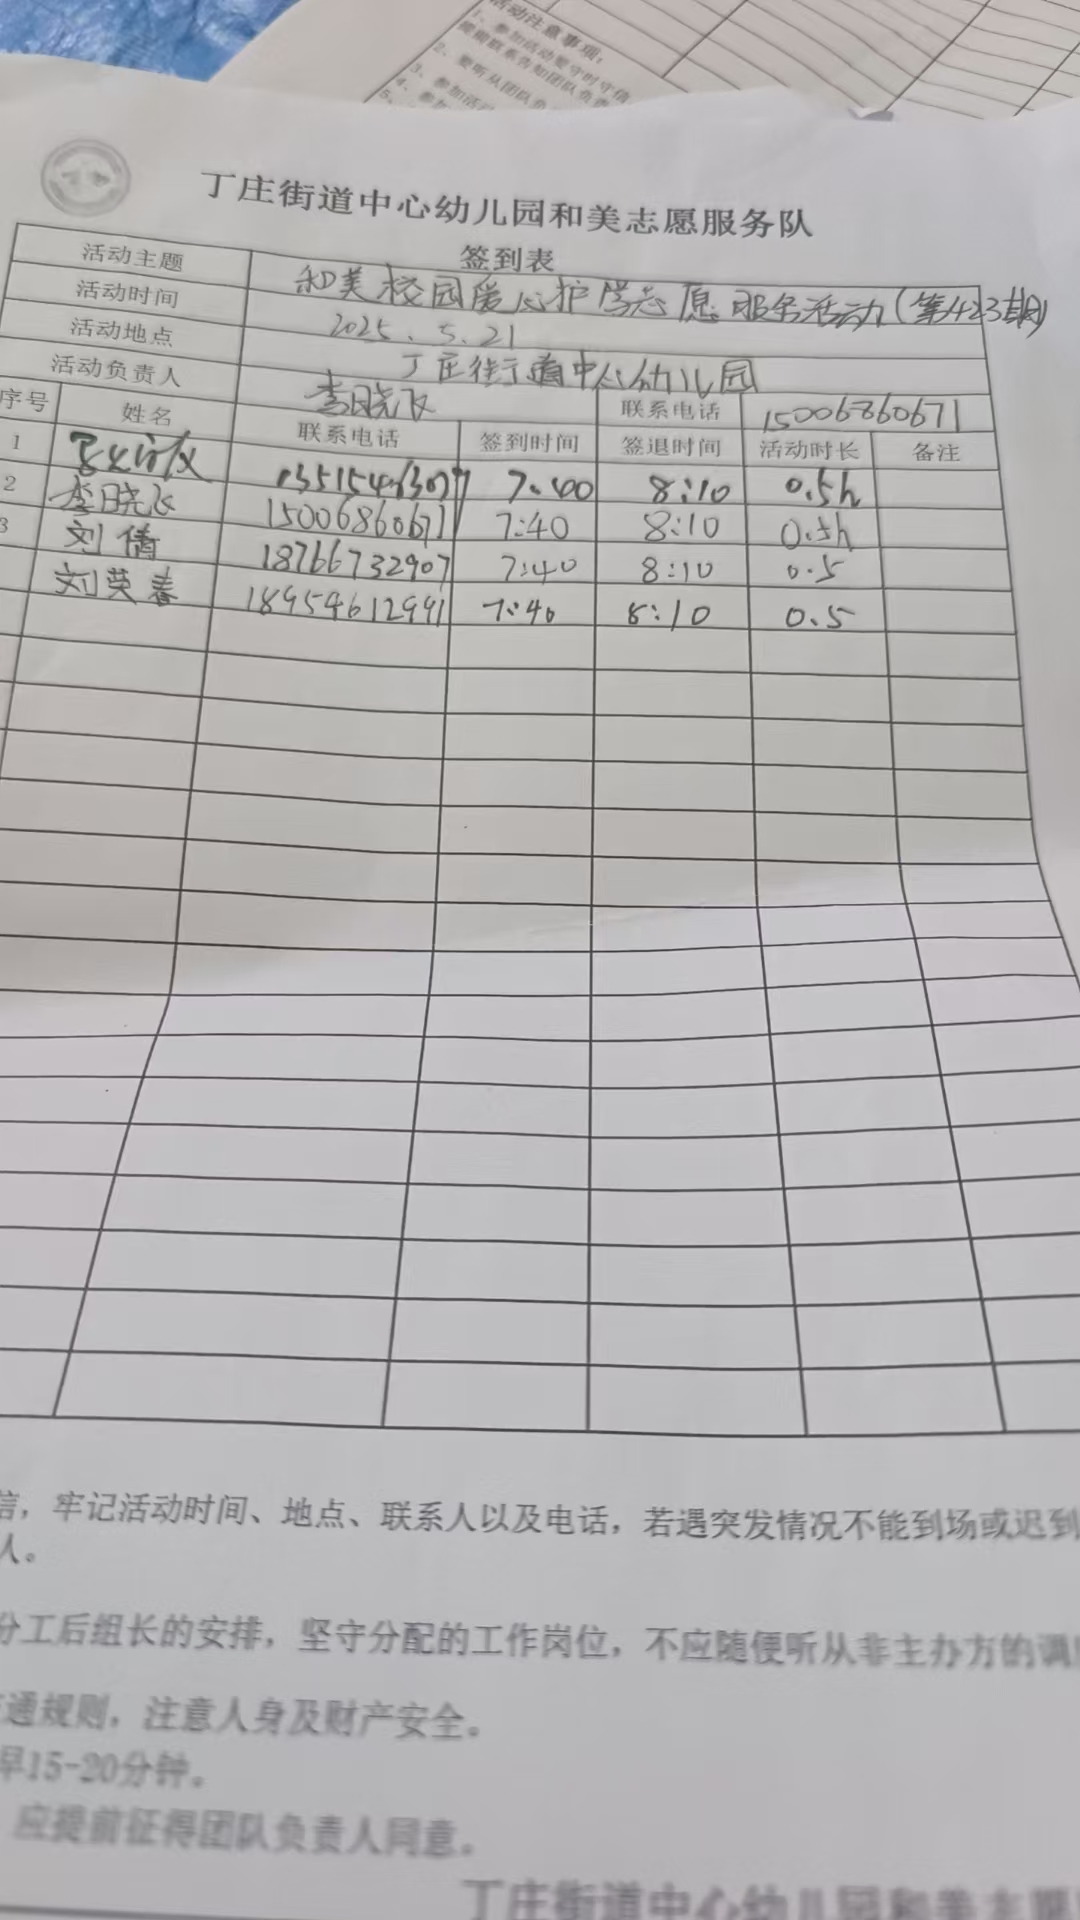 活动注意事项：
1、参加活动要守时守信
提前联系告知团队负责
2、要听从团队负
3、参加活
4、参加
5、
丁庄街道中心幼儿园和美志愿服务队
签到表
活动主题 和美校园爱心护学志愿服务活动(第423期)
活动时间 2025.5.21
活动地点 丁庄街道中心幼儿园
活动负责人 李晓飞 联系电话 15006860671
序号 姓名 联系电话 签到时间 签退时间 活动时长 备注
1 7:40 8:10 0.5h
2 李晓飞 15006860671 7:40 8:10 0.5h
3 刘倩 18766732907 7:40 8:10 0.5
刘英春 18954612991 7:40 8:10 0.5
信，牢记活动时间、地点、联系人以及电话，若遇突发情况不能到场或迟到
人。
分工后组长的安排，坚守分配的工作岗位，不应随便听从非主办方的调
通规则，注意人身及财产安全。
早15-20分钟。
应提前征得团队负责人同意。
丁庄街道中心幼儿园和美志愿